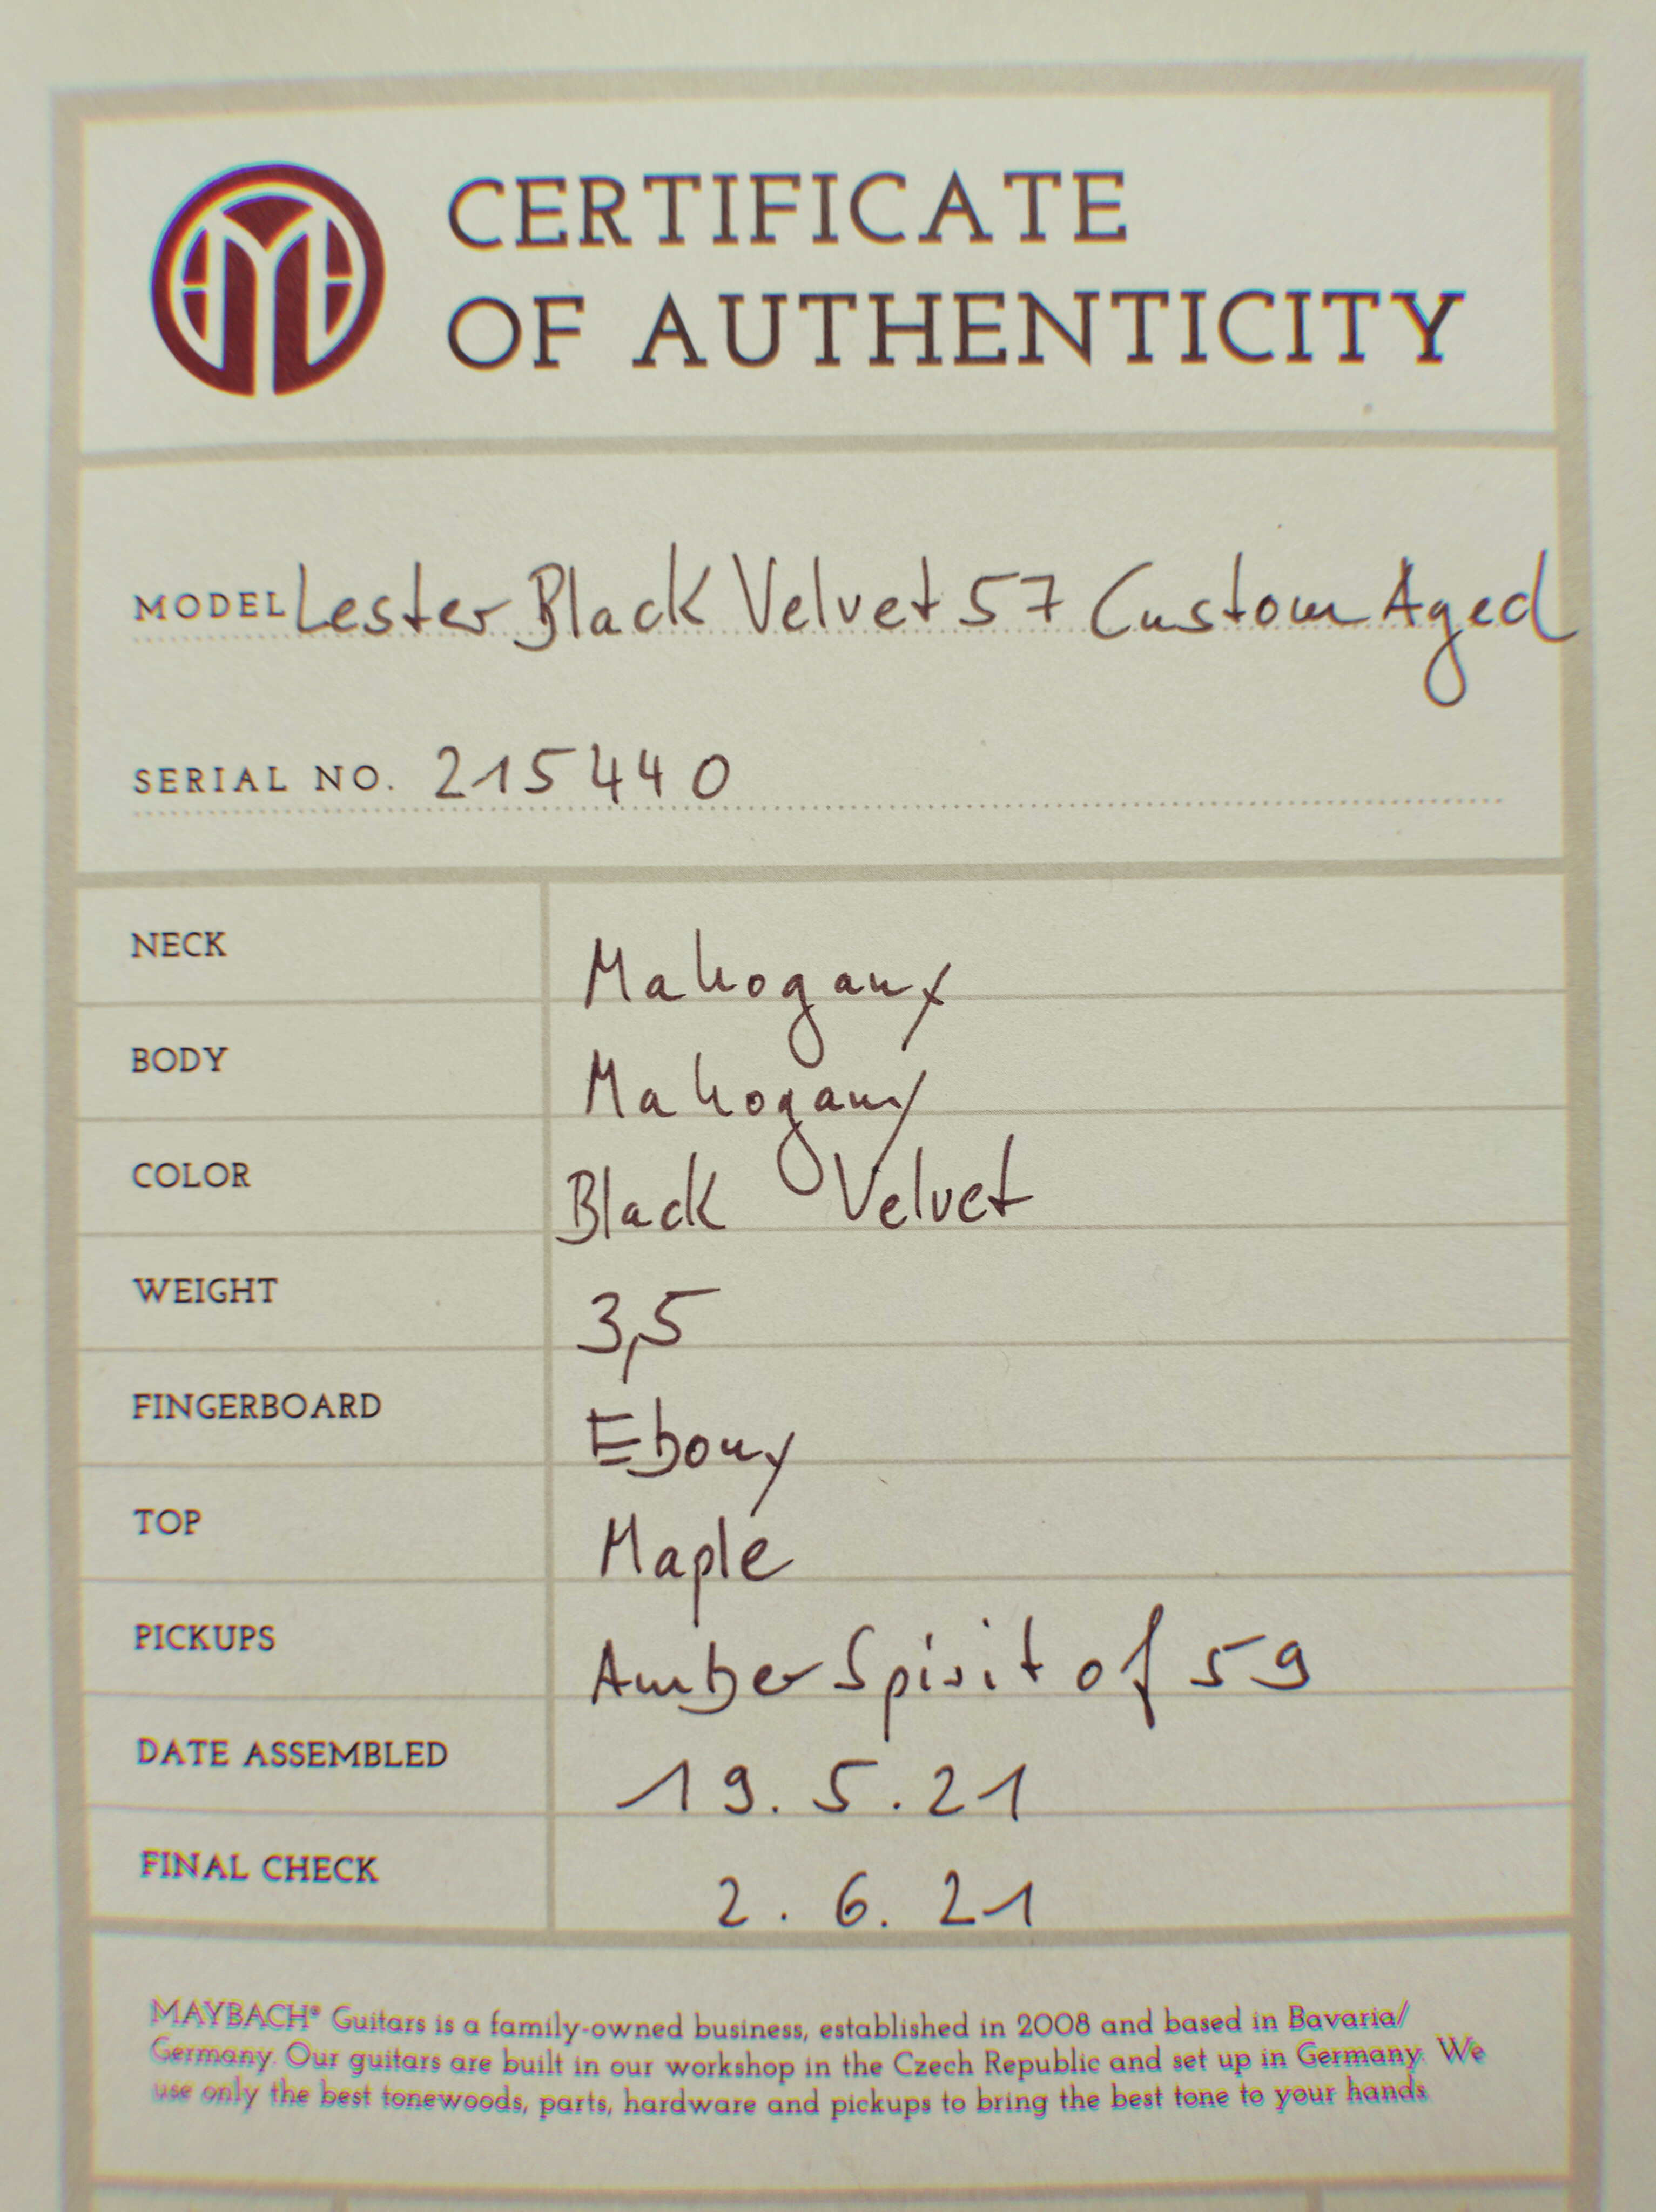 CERTIFICATE
OF AUTHENTICITY
MODEL Lester Black Velvet 57 Custom Aged
SERIAL NO. 215440
NECK Mahogany
BODY Mahogany
COLOR Black Velvet
WEIGHT 3,5
FINGERBOARD Ebony
TOP Maple
PICKUPS Amber Spirit of 59
DATE ASSEMBLED 19.5.21
FINAL CHECK 2.6.21
MAYBACH® Guitars is a family-owned business, established in 2008 and based in Bavaria/
Germany. Our guitars are built in our workshop in the Czech Republic and set up in Germany. We
use only the best tonewoods, parts, hardware and pickups to bring the best tone to your hands.